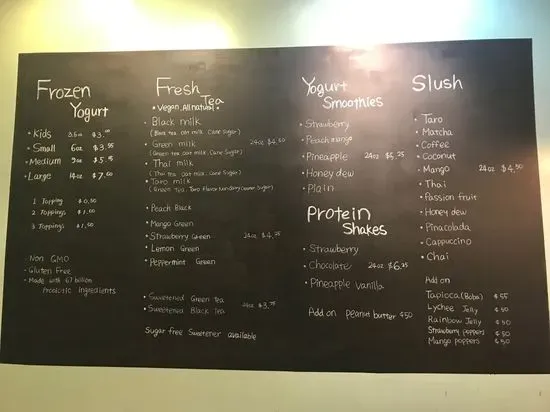 Frozen
Yogurt
• Kids 3.5oz $3.00
• Small 6oz $3.95
• Medium 9oz $5.75
• Large 14oz $7.60
1 Topping $0.50
2 Toppings $1.00
3 Toppings $1.50
Non GMO
• Gluten Free
• Made with 67 billion
Probiotic ingredients
Fresh
Tea
• Vegan, All natural •
• Black milk
(Black tea, oat milk, Cane Sugar)
• Green milk 24oz $4.50
(Green tea, oat milk, Cane Sugar)
• Thai milk
(Thai tea, oat milk, Cane Sugar)
• Taro milk
(Green Tea, Taro Flavor Nondairy creamer, Sugar)
• Peach Black
• Mango Green
• Strawberry Green 24oz $4.25
• Lemon Green
• Peppermint Green
• Sweetened Green Tea
• Sweetened Black Tea 24oz $3.75
Sugar free Sweetener available
Yogurt
Smoothies
• Strawberry
• Peach mango
• Pineapple 24oz $5.25
• Honey dew
• Plain
Protein
Shakes
• Strawberry
• Chocolate 24oz $6.25
• Pineapple Vanilla
Add on peanut butter ¢50
Slush
• Taro
• Matcha
• Coffee
• Coconut
• Mango 24oz $4.50
• Thai
• Passion fruit
• Honey dew
• Pinacolada
• Cappuccino
• Chai
Add on
Tapioca (Boba) ¢55
Lychee Jelly ¢50
Rainbow Jelly ¢50
Strawberry poppers ¢50
Mango poppers ¢50